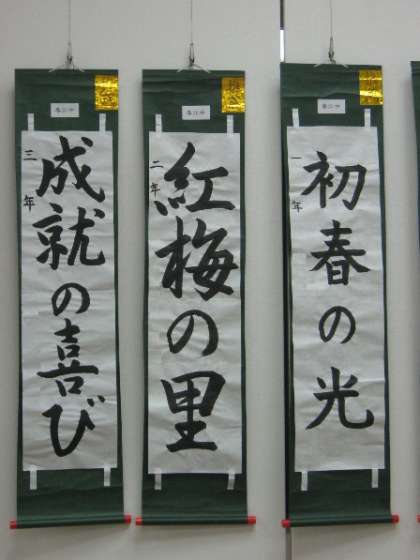 初春の光
一年
紅梅の里
二年
成就の喜び
三年